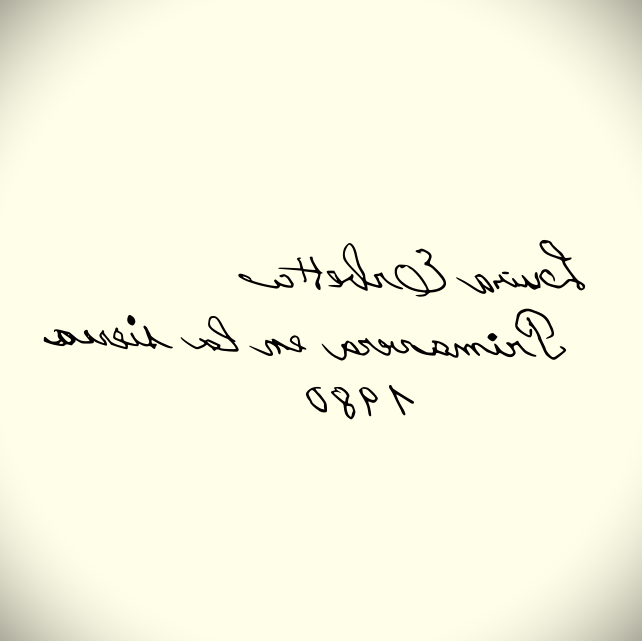 Corbetta
Primavera en la sierra
1980